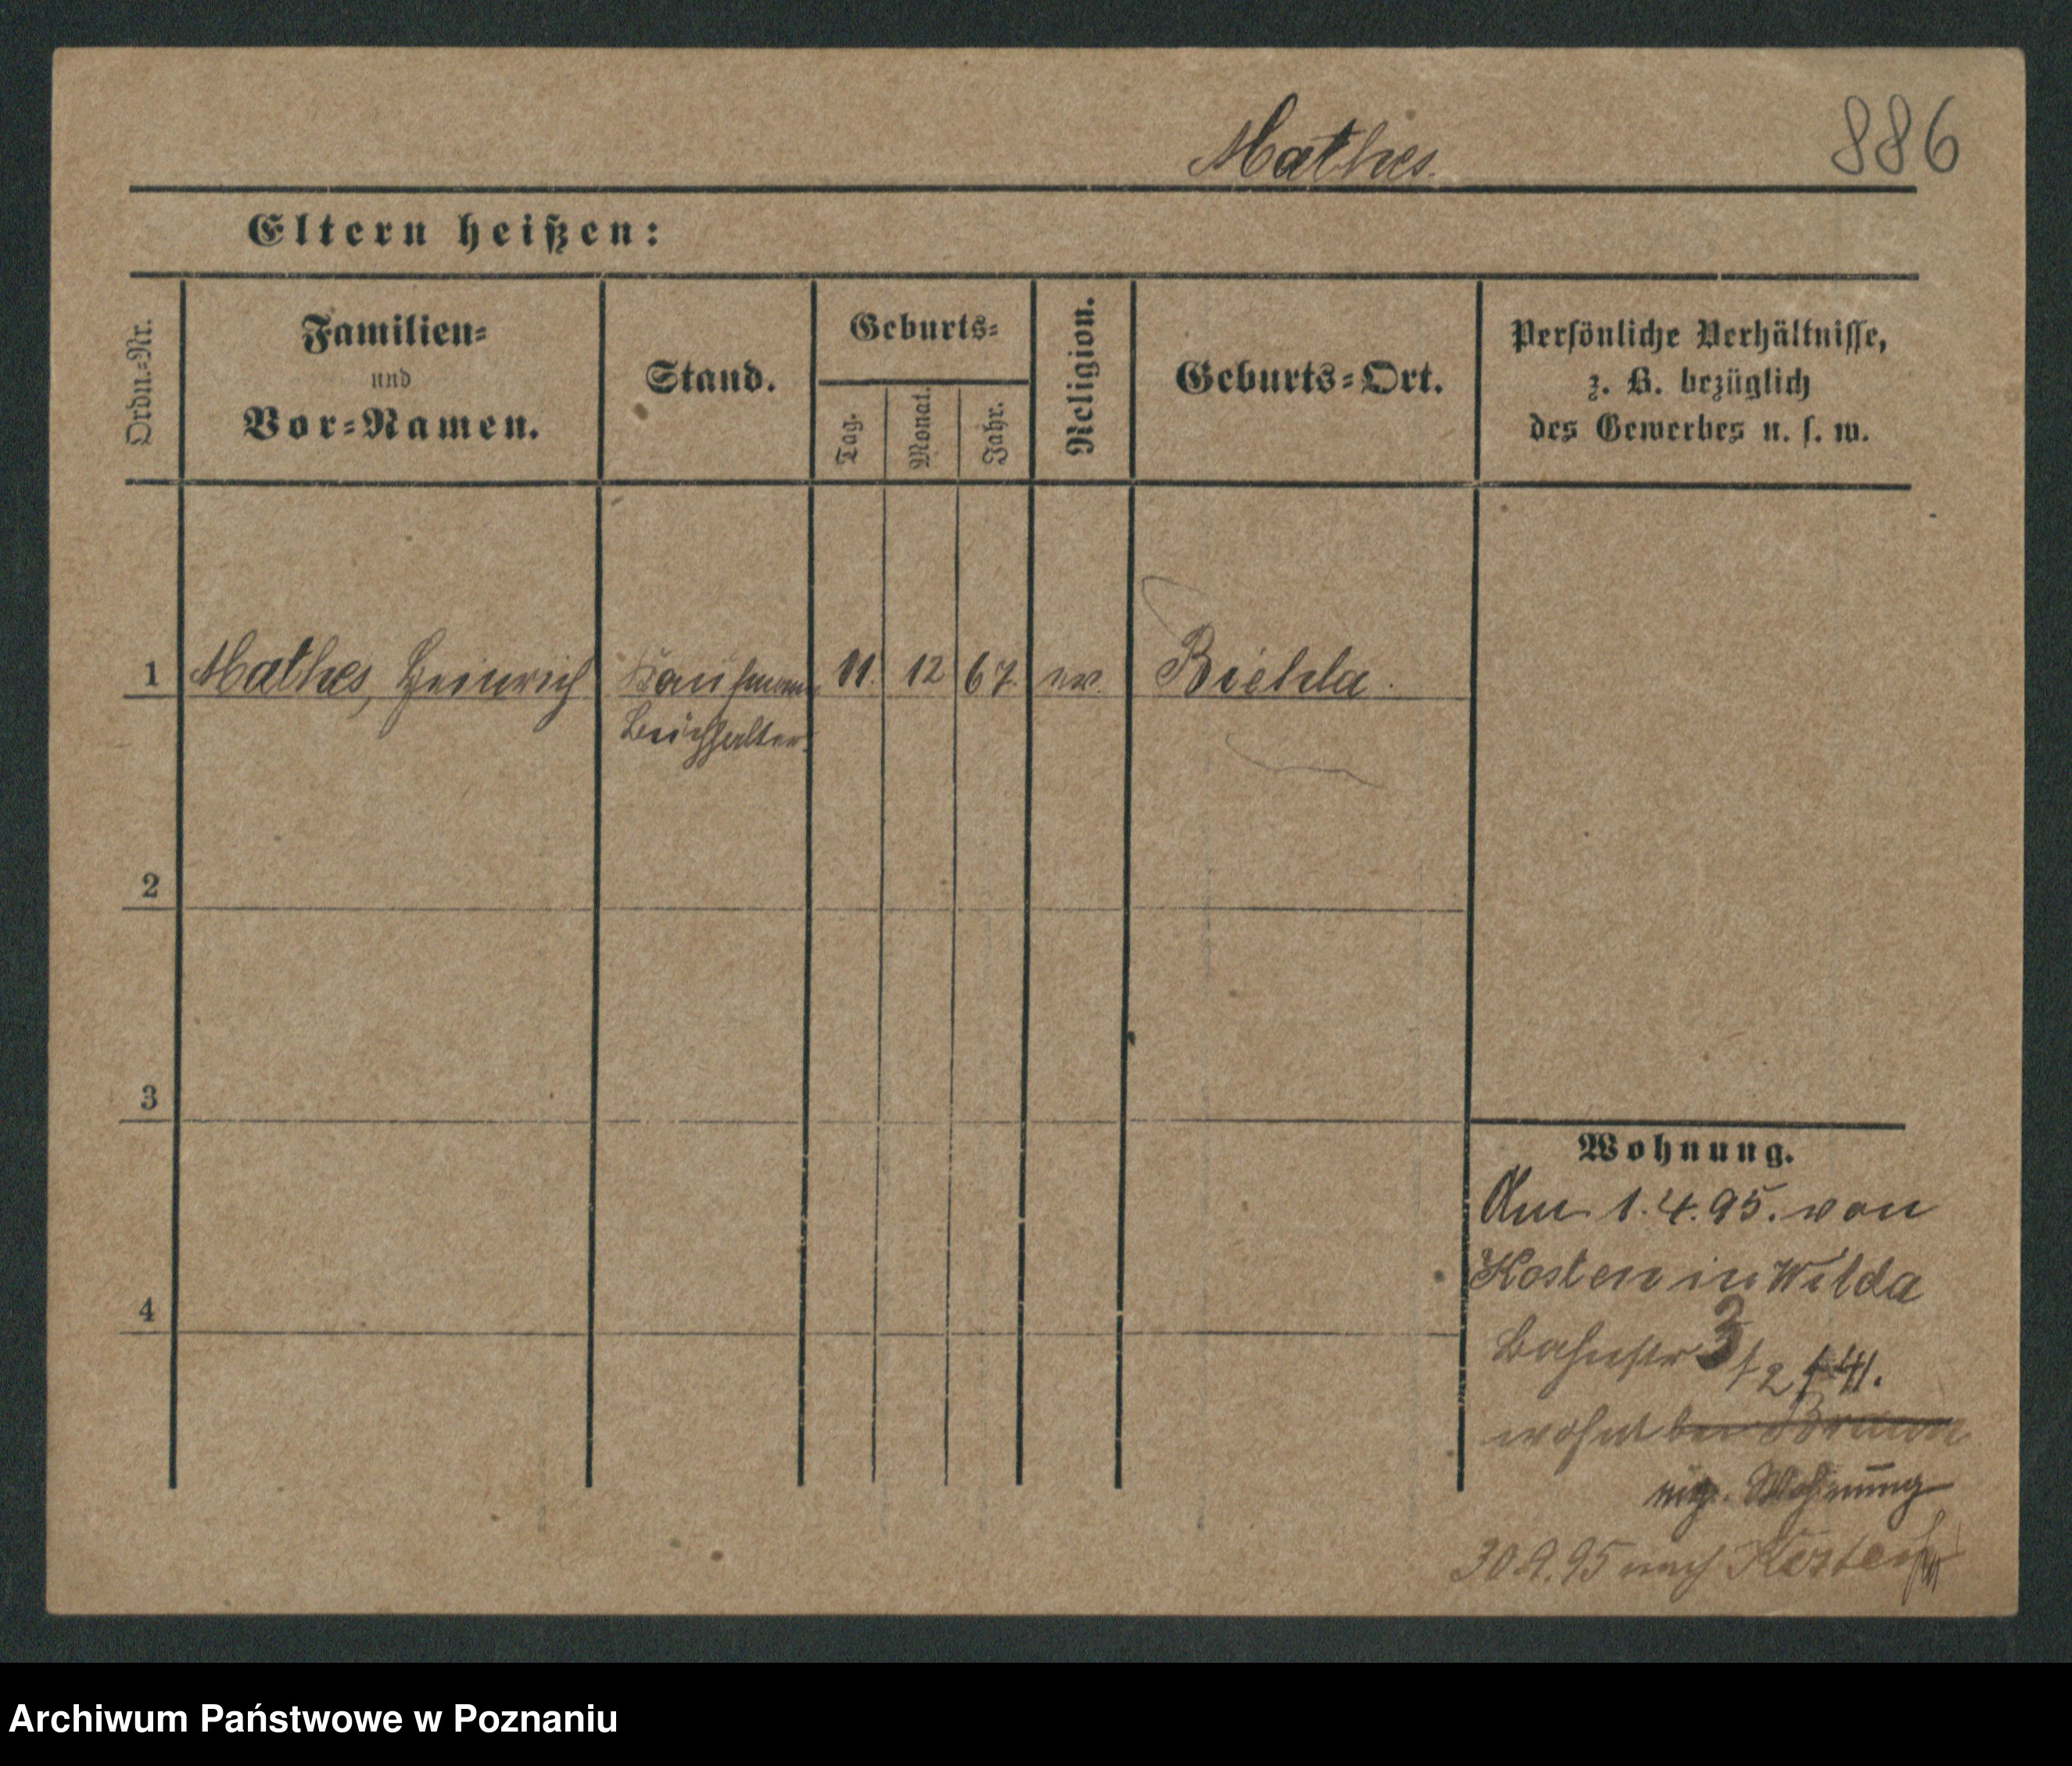 Mathes.
886
Eltern heißen:
Ordn.-Nr.
Familien-
und
Vor-Namen.
Stand.
Geburts-
Tag.
Monat.
Jahr.
Religion.
Geburts-Ort.
Persönliche Verhältnisse,
z. B. bezüglich
des Gewerbes u. s. w.
1 Mathes, Heinrich Kaufmann 11. 12 67. ev. Biehla.
Buchhalter
2
3
4
Wohnung.
Am 1.4.95. von
Kosten in Wilda
Bahnstr 3
wohnt bei Braun
Wohnung
30.9.95 nach Kosten
Archiwum Państwowe w Poznaniu